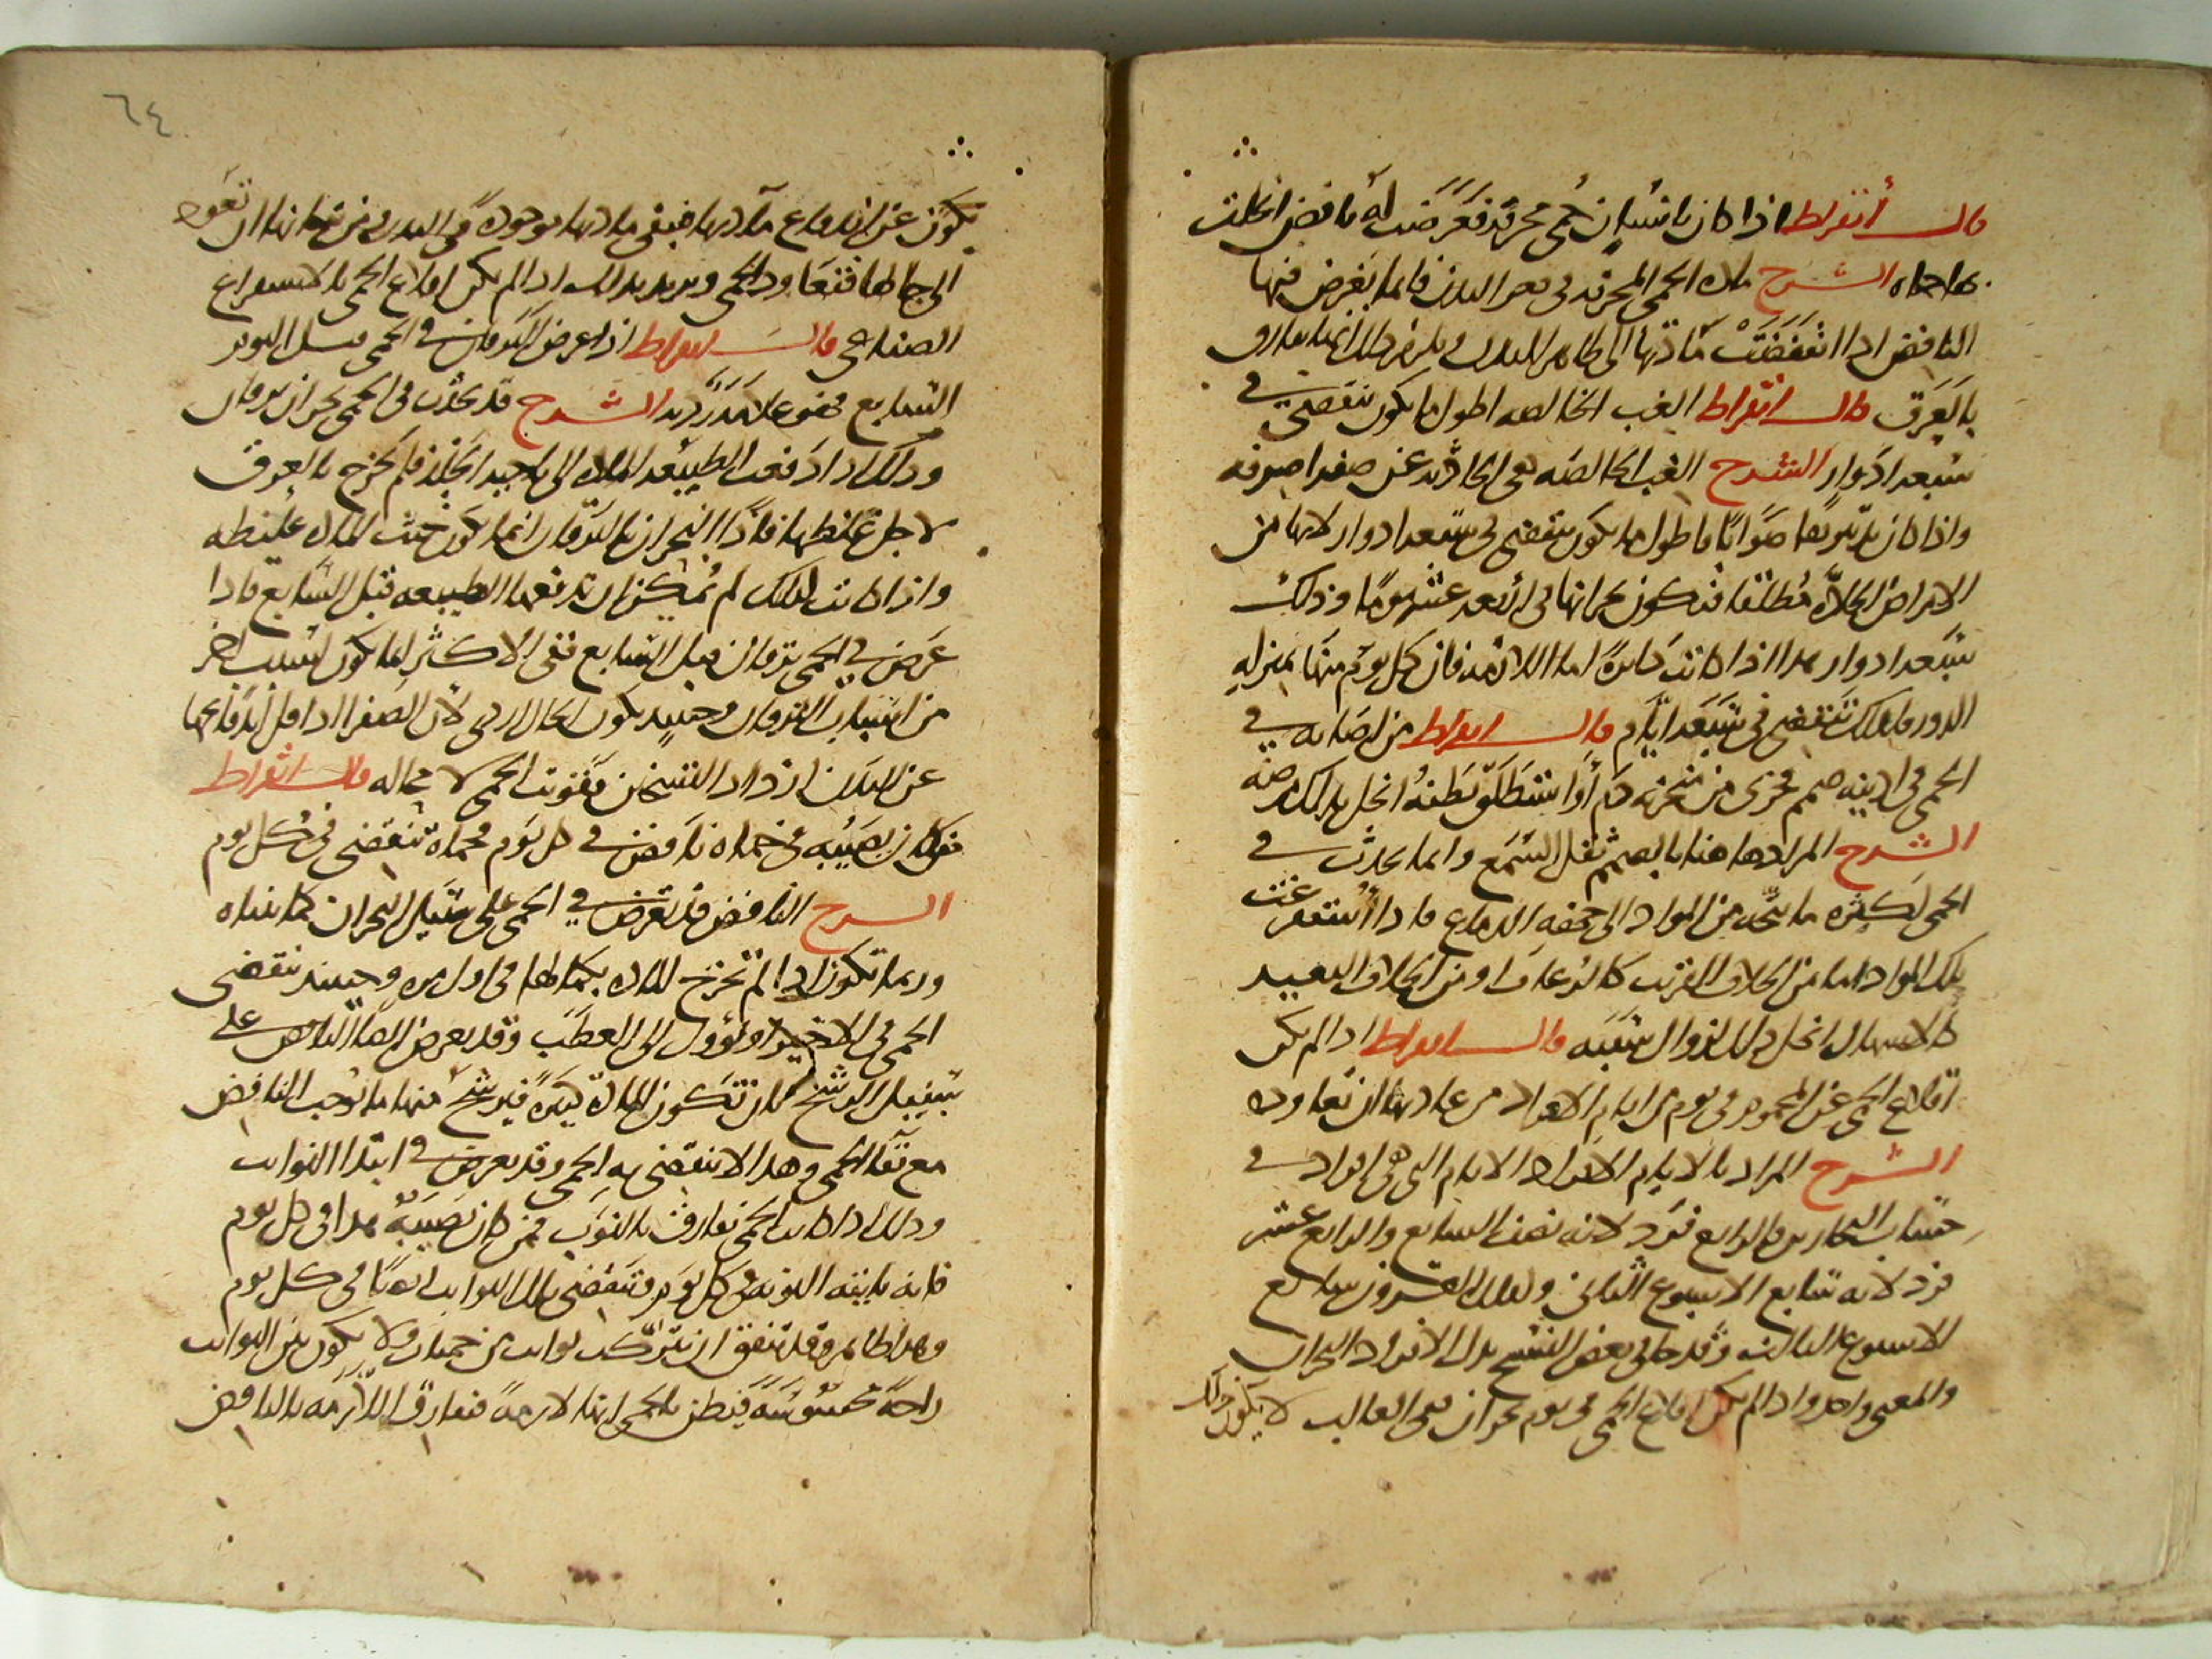 قال أبقراط اذا كان بانسان حمى محرقة فعرضت له نافض انحلت
بها حماه الشرح مادة الحمى المحرقة في قعر البدن فانما يعرض فيها
النافض اذا انتفضت مادتها الى ظاهر البدن ويلزم ذلك انها تفارق
بالعرق قال ابقراط الغب الخالصة اطول ما يكون تنقضي في
سبعة ادوار الشرح الغب الخالصة هي الحادثة عن صفرا صرفة
واذا كان تدبيرها صوابا فاطول ما يكون تنقضي في سبعة ادوار لانها من
الامراض الحادة مطلقا فيكون بحرانها في اربعة عشر يوما وذلك
سبعة ادوار هذا اذا كانت دايرة اما اللازمة فان كل يوم منها بمنزلة
الدور فلذلك تنقضي في سبعة ايام قال ابقراط من اصابه في
الحمى في اذنيه صمم فجرى من منخريه دم أو استطلق بطنه انحل بذلك مرضه
الشرح المراد هاهنا بالصمم ثقل السمع وانما يحدث في
الحمى لكثرة ما يتجه من المواد الى جهة الدماغ فاذا استفرغت
تلك المواد اما من الخلاف القريب كالرعاف او من الخلاف البعيد
كالاسهال انحل ذلك لزوال سببه قال ابقراط اذا لم يكن
اقلاع الحمى عن المحموم في يوم من ايام الافراد من عادتها ان تعاوده
الشرح المراد بالايام الافراد الايام التي هي افراد في
حساب البحارين فالرابع فرد لانه نصف السابع والرابع عشر
فرد لانه سابع الاسبوع الثاني وكذلك العشرون سابع
الاسبوع الثالث وقد جا في بعض النسخ بدل الافراد البحران
والمعنى واحد واذا لم يكن اقلاع الحمى في يوم بحران ففي الغالب لا يكون ذلك
٦٤
يكون عن اندفاع مادتها فيبقى مادتها موجودة في البدن فمن شانها ان تعود
الى حالها فتعاود الحمى ويريد بذلك اذا لم يكن اقلاع الحمى بالاستفراغ
الصناعي قال ابقراط اذا عرض اليرقان في الحمى قبل اليوم
السابع فهو علامة رديه الشرح قد يحدث في الحمى بحران يرقان
وذلك اذا دفعت الطبيعة المادة الى ناحية الجلد فلم تخرج بالعرق
لاجل غلظها فاذا البحران باليرقان انما يكون حيث المادة غليظه
واذا كانت كذلك لم يمكن ان تدفعها الطبيعه قبل السابع فاذا
عرض في الحمى يرقان قبل السابع ففي الاكثر انما يكون لسبب اخر
من اسباب اليرقان وحينيذ يكون الحال اردى لان الصفرا اذا قل اندفاعها
عن البدن ازداد التسخن وقويت الحمى لا محاله قال ابقراط
من كان يصيبه في حماه نافض في كل يوم فحماه تنقضي في كل يوم
الشرح النافض قد تعرض في الحمى على سبيل البحران كما بيناه
وربما تكون اذا لم تخرج المادة بكمالها في اول مرة وحينيذ تنقضي
الحمى في الاخير او تؤول الى العطب وقد يعرض ايضا النافض على
سبيل الترشح كما ان تكون المادة كثيرة فيترشح منها ما يوجب النافض
مع بقا الحمى وهذا لا تنقضي به الحمى وقد يعرض في ابتدا النوايب
وذلك اذا كانت الحمى تفارق بالنوب فمن كان يصيبه هذا في كل يوم
فانه ياتيه النوبة في كل يوم وتنقضي تلك النوايب ايضا في كل يوم
وهذا ظاهر وقد يتفق ان تتركب نوايب من حميات ولا يكون بين النوايب
راحة محسوسة فيظن بالحمى انها لازمة فتفارق اللازمة بالنافض